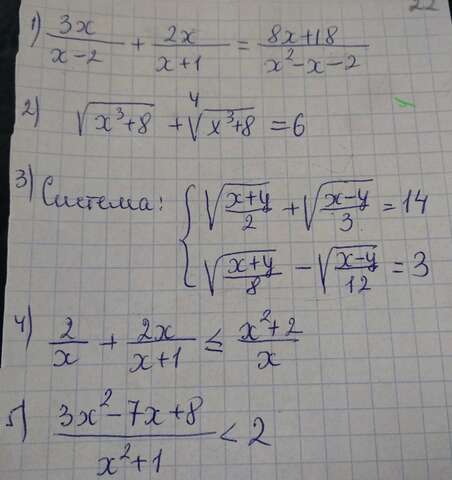 1) 3x/(x-2) + 2x/(x+1) = (8x+18)/(x²-x-2)
2) √(x³+8) + ⁴√(x³+8) = 6
3) Система: { √((x+y)/2) + √((x-y)/3) = 14
√((x+y)/8) - √((x-y)/12) = 3
4) 2/x + 2x/(x+1) ≤ (x²+2)/x
5) (3x²-7x+8)/(x²+1) < 2